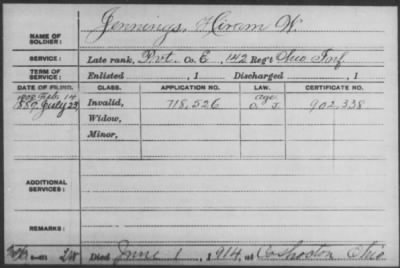 Jennings, Hiram W.
NAME OF SOLDIER:
SERVICE: Late rank, Pvt. Co. E, 142 Reg't Ohio Inf.
TERM OF SERVICE: Enlisted , 1 Discharged , 1
DATE OF FILING. CLASS. APPLICATION NO. LAW. CERTIFICATE NO.
1880 July 23 Invalid, 718,526 902,338
Widow,
Minor,
ADDITIONAL SERVICES:
REMARKS:
Died June 1, 1914, at Coshocton Ohio